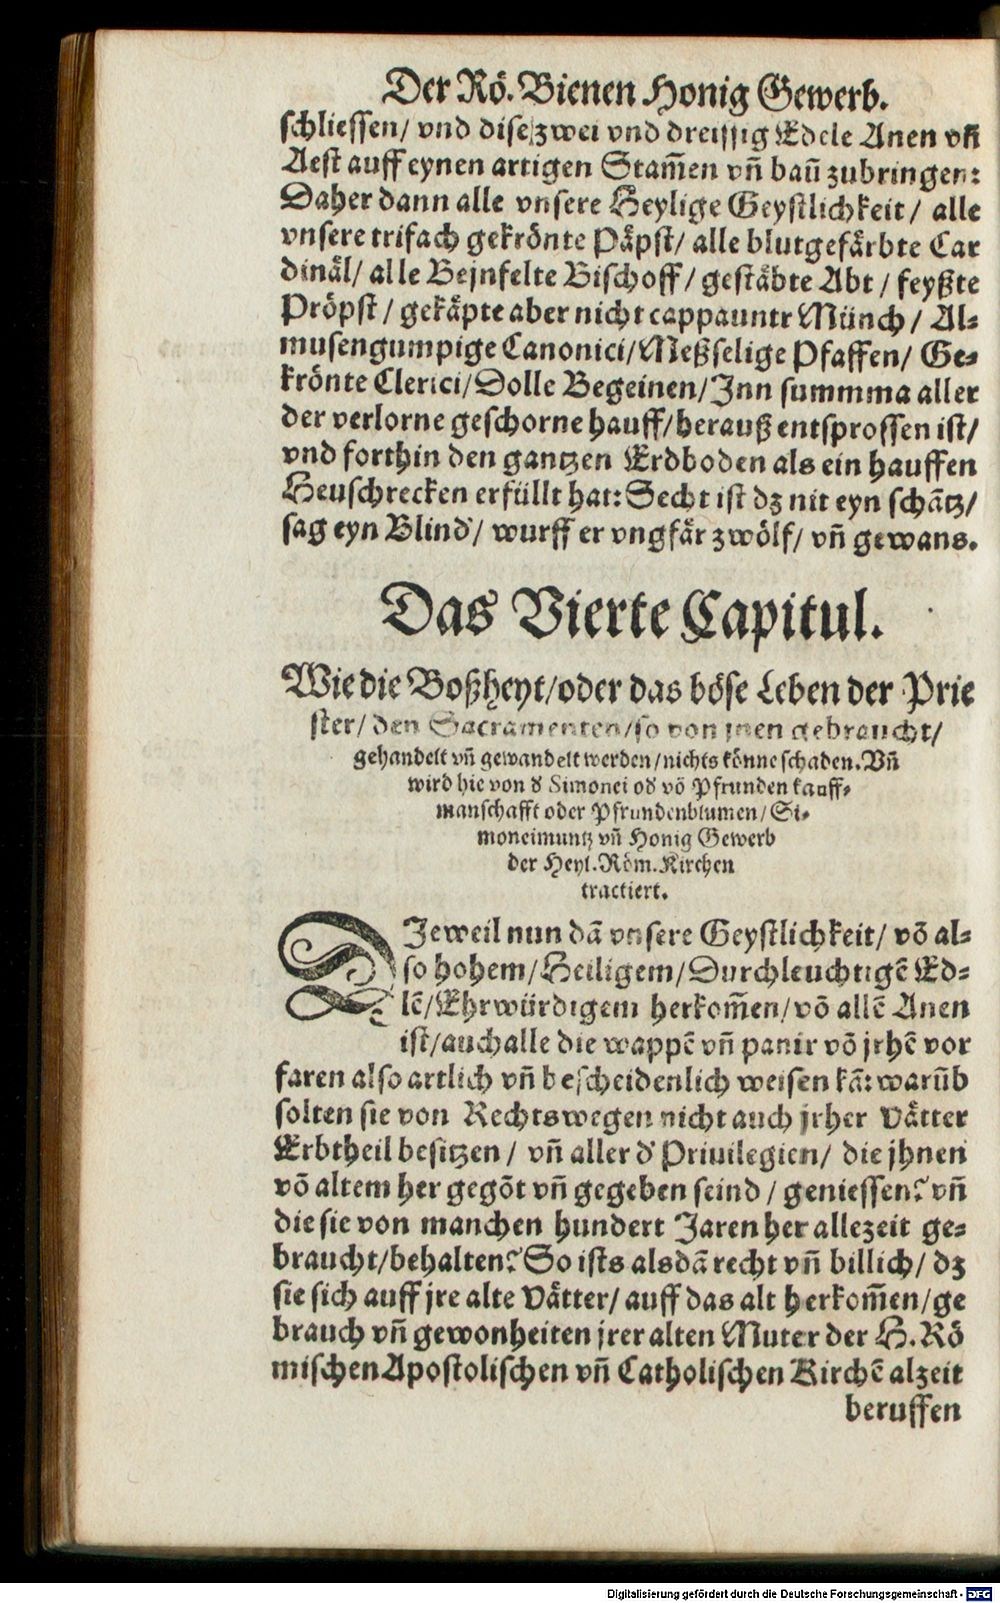 Der Rö. Bienen Honig Gewerb.
schliessen/ vnd dise zwei vnd dreissig Edele Anen vñ
Aest auff eynen artigen Stam̃en vñ baũ zubringen:
Daher dann alle vnsere Heylige Geystlichkeit/ alle
vnsere trifach gekrönte Päpst/ alle blutgefärbte Car
dinäl/ alle Bejnfelte Bischoff/ gestäbte Abt/ feyßte
Pröpst/ gekäpte aber nicht cappauntr Münch/ Al-
musengumpige Canonici/ Meßselige Pfaffen/ Ge-
krönte Clerici/ Dolle Begeinen/ Inn summma aller
der verlorne geschorne hauff/ herauß entsprossen ist/
vnd forthin den gantzen Erdboden als ein hauffen
Heuschrecken erfüllt hat: Secht ist dz nit eyn schãtz/
sag eyn Blind/ wurff er vngfär zwölf/ vñ gewans.
Das Vierte Capitul.
Wie die Boßheyt/ oder das böse Leben der Prie
ster/ den Sacramenten/ so von jnen gebraucht/
gehandelt vñ gewandelt werden/ nichts könne schaden. Vñ
wird hie von d Simonei od võ Pfrunden kauff-
manschafft oder Pfrundenblumen/ Si-
moneimuntz vñ Honig Gewerb
der Heyl. Röm. Kirchen
tractiert.
DJeweil nun dã vnsere Geystlichkeit/ võ al-
so hohem/ Heiligem/ Durchleuchtigẽ Ed-
lẽ/ Ehrwürdigem herkom̃en/ võ allẽ Anen
ist/ auch alle die wappẽ vñ panir võ jrhẽ vor
faren also artlich vñ bescheidenlich weisen kã: warũb
solten sie von Rechtswegen nicht auch jrher Vätter
Erbtheil besitzen/ vñ aller d' Priuilegien/ die jhnen
võ altem her gegõt vñ gegeben seind/ geniessen? vñ
die sie von manchen hundert Jaren her allezeit ge-
braucht/ behalten? So ists alsdã recht vñ billich/ dz
sie sich auff jre alte Vätter/ auff das alt herkom̃en/ ge
brauch vñ gewonheiten jrer alten Muter der H. Rö
mischen Apostolischen vñ Catholischen Kirchẽ alzeit
beruffen
Digitalisierung gefördert durch die Deutsche Forschungsgemeinschaft - DFG